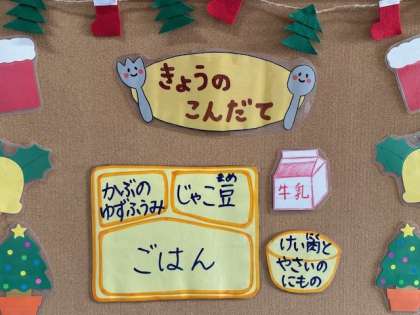 きょうの
こんだて
かぶの
ゆずふうみ
じゃこ豆
まめ
牛乳
ごはん
けい肉と
にく
やさいの
にもの